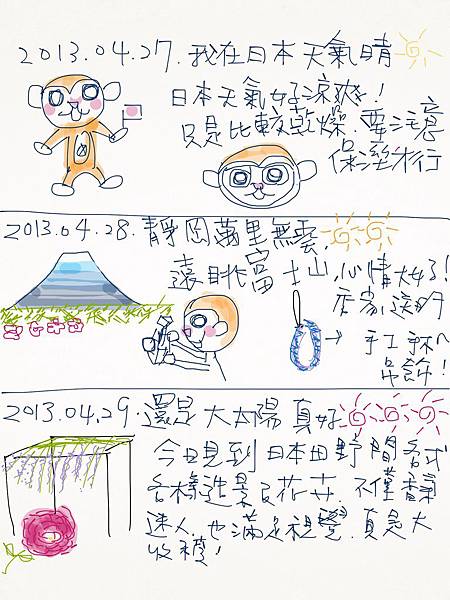 2013.04.27.我在日本天氣晴
日本天氣好涼爽!
只是比較乾燥.要注意
保溼才行
2013.04.28.靜岡萬里無雲,
遠眺富士山,心情大好!
店家送的
→手工
吊飾!
2013.04.29.還是大太陽真好
今日見到日本田野間各式
各樣造景&花卉.不僅香氣
迷人.也滿足視覺.真是大
收穫!